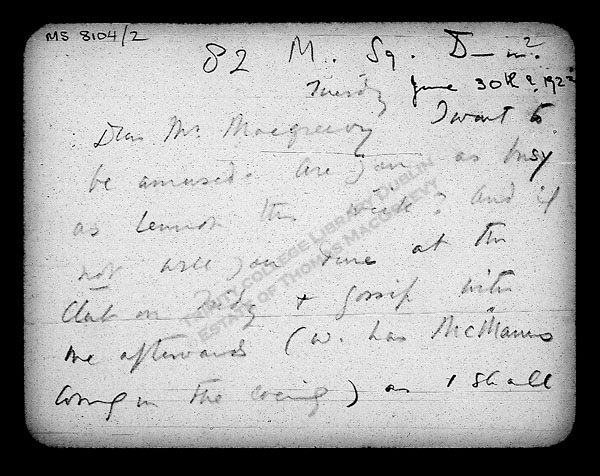 MS 8104/2
82 M. Sq. D—n.
Tuesday June 30th? 192
Dear Mr. Macgreevy I want to
be amused. Are you as busy
as Lennox this week? And if
not will you dine at the
Club on Friday & gossip with
me afterwards (W. has McManus
coming in the evening) as I shall
TRINITY COLLEGE LIBRARY DUBLIN
ESTATE OF THOMAS MACGREEVY